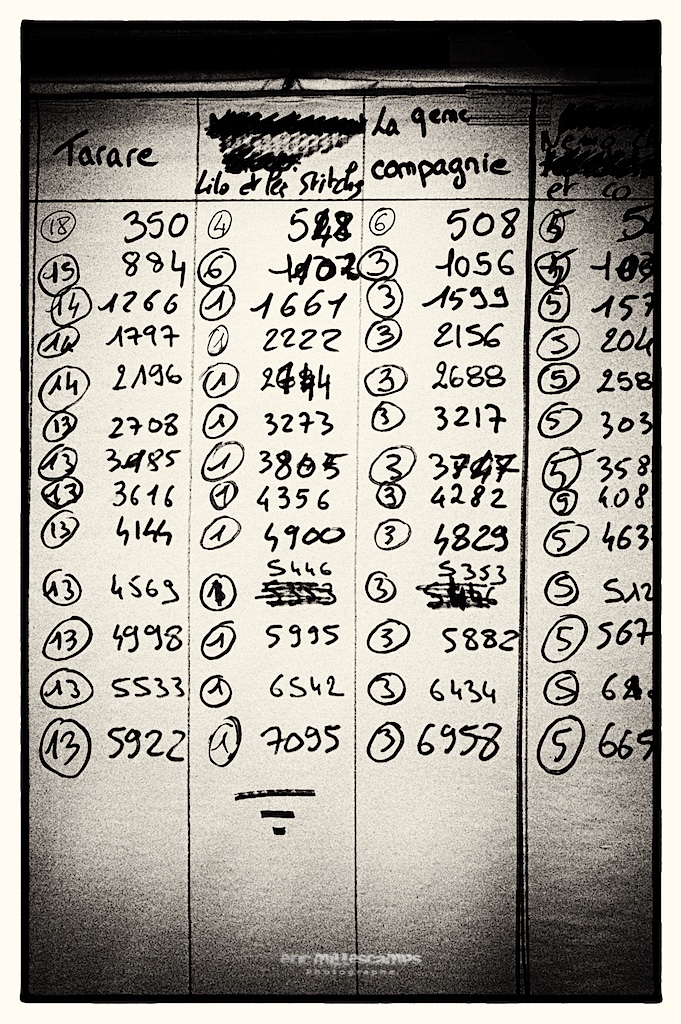 Tarare
La 9eme
Lilo et les Stitchs
compagnie
et co
18 350 4 528 6 508 5 5
15 884 6 1102 3 1056 1
14 1266 1 1661 3 1599 5 157
14 1797 1 2222 3 2156 5 204
14 2196 1 3 2688 5 258
13 2708 1 3273 3 3217 5 303
13 3185 1 3805 3 3747 5 358
13 3616 1 4356 3 4282 5 408
13 4144 1 4900 3 4829 5 463
5446 5353
13 4569 1 3 5 512
13 4998 1 5995 3 5882 5 567
13 5533 1 6542 3 6434 5
13 5922 1 7095 3 6958 5 665
eric millescamps
Photographe